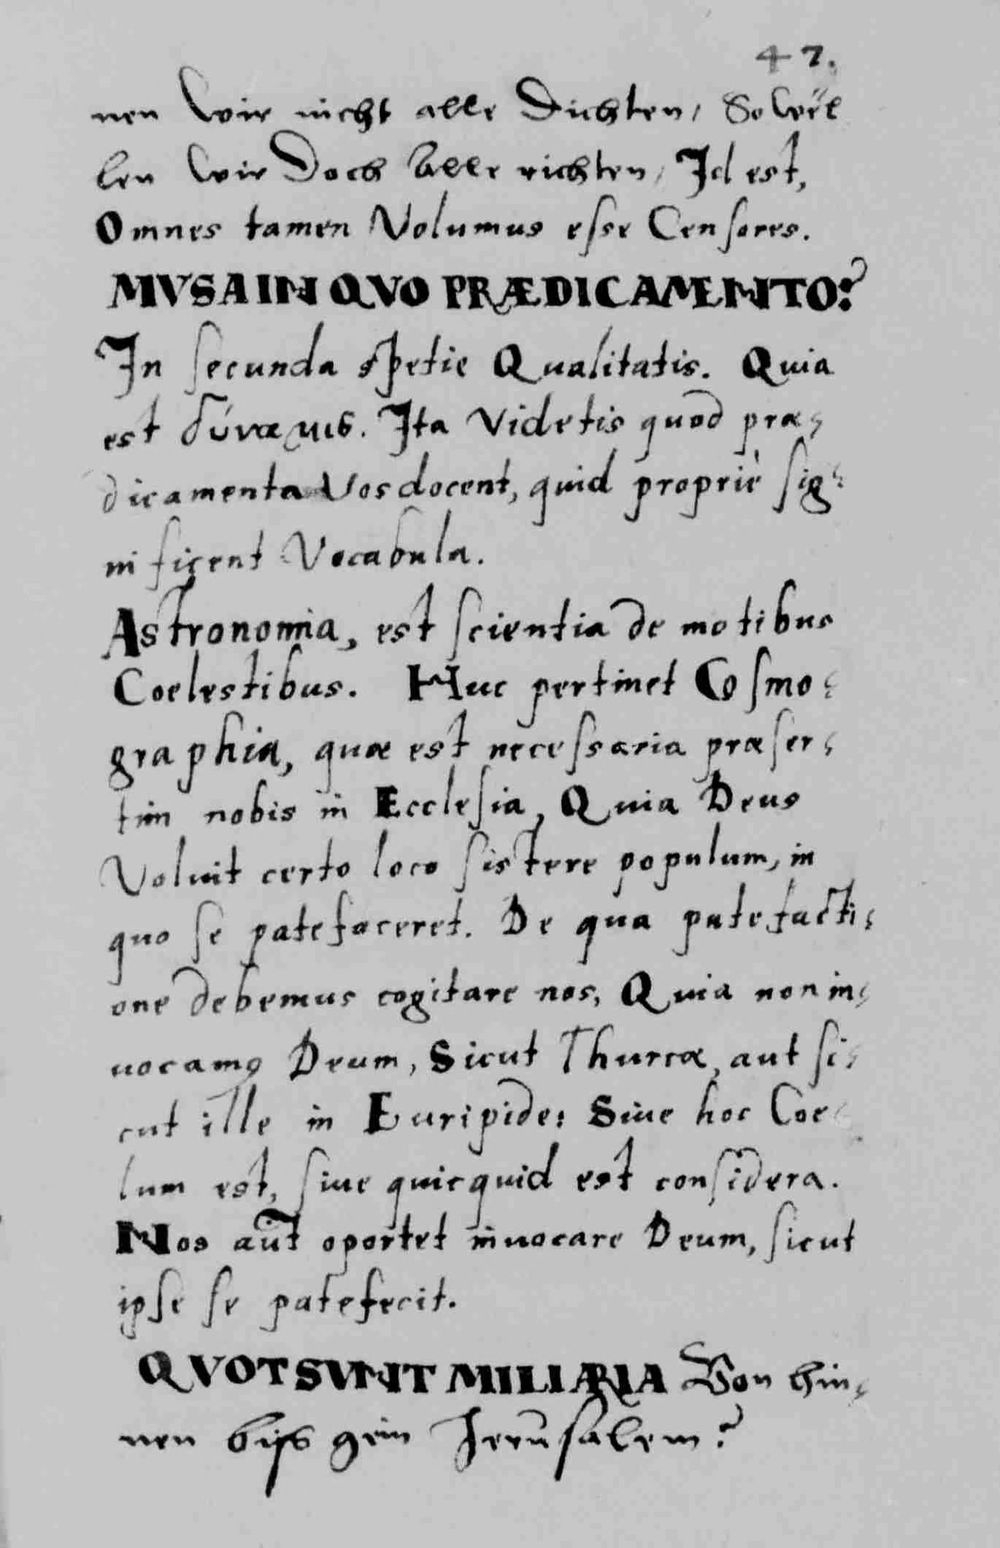 47.
nen wir nicht alle Dichten, So wöl
len wir Doch alle richten, Id est,
Omnes tamen Volumus esse Censores.
MVSA IN QVO PRÆDICAMENTO?
In secunda spetie Qualitatis. Quia
est δύναμις. Ita Videtis quod præ,
dicamenta Vos docent, quid propriè sig:
nificent Vocabula.
Astronomia, est scientia de motibus
Coelestibus. Huc pertinet Cosmo:
graphia, quæ est necessaria præser:
tim nobis in Ecclesia, Quia Deus
Voluit certo loco sistere populum, in
quo se patefaceret. De qua patefacti:
one debemus cogitare nos, Quia non in,
uocamꝰ Deum, Sicut Thurcæ, aut si:
cut ille in Euripide: Siue hoc Coe:
lum est, siue quicquid est considera.
Nos aut̄ oportet inuocare Deum, sicut
ipse se patefecit.
QVOT SVNT MILIARIA Von hin,
nen biß gein Jerusalem?